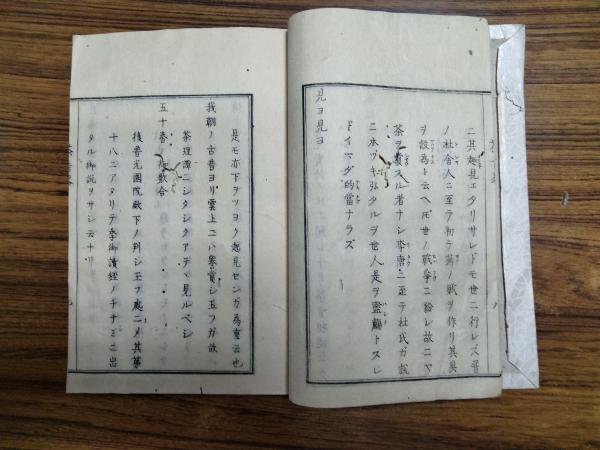 ニ其趣見エタリサレドモ世ニ行レズ晋
ノ杜舍人ニ至ラ初テ荈ノ賦ヲ作リ其具
ヲ設為ト云ヘ𪜈世ノ戦爭ニ紛レ故ニヤ
茶ヲ賞スル者ナシ李唐ニ至テ杜氏ガ説
ニ本ツキ弘タルヲ世人是ヲ濫觴トスレ
ドイマダ的當ナラズ
見ヨ見ヨ
是モ亦下ヲツヨク起見センガ為ニ云也
我朝ノ古昔ヨリ雲上ニハ無賞シ玉フガ故
茶理譚ニシタシクアテヽ見ルベシ
五十巻 敷合
後普光園院殿下ノ判シ玉フ處ニメ其
十八ニアタリテ季御讀經ノチナミニ出
タル御説ヲサシ云ナリ